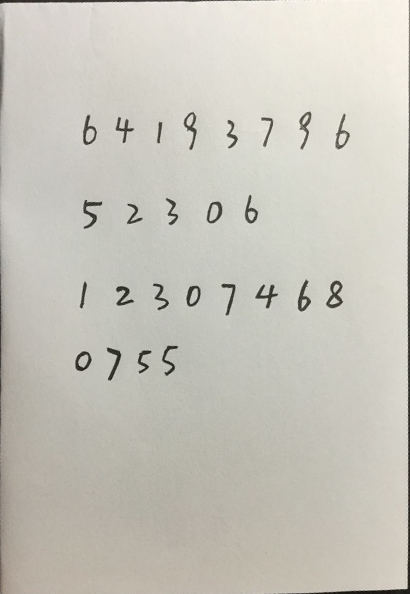 6 4 1 9 3 7 9 6
5 2 3 0 6
1 2 3 0 7 4 6 8
0 7 5 5